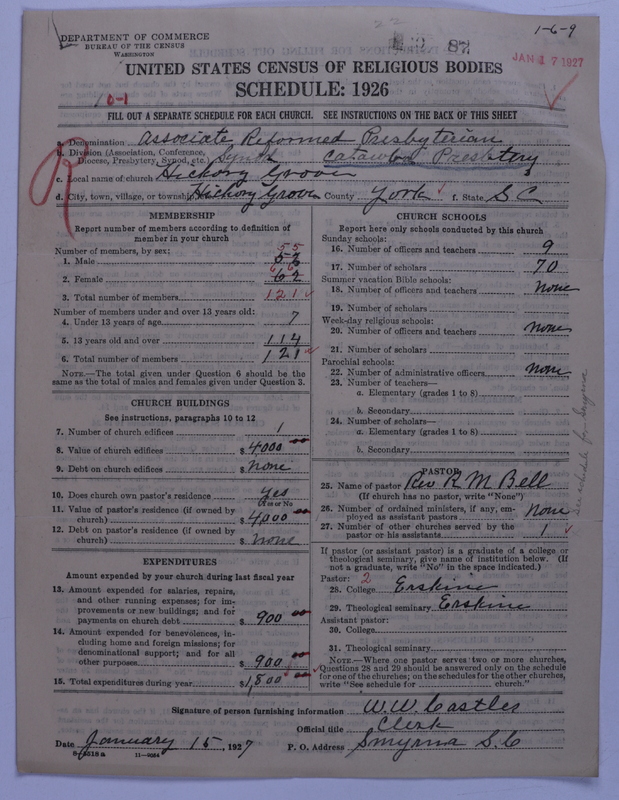 DEPARTMENT OF COMMERCE
BUREAU OF THE CENSUS
WASHINGTON
87
1-6-9
JAN 17 1927
UNITED STATES CENSUS OF RELIGIOUS BODIES
SCHEDULE: 1926
10-1
FILL OUT A SEPARATE SCHEDULE FOR EACH CHURCH. SEE INSTRUCTIONS ON THE BACK OF THIS SHEET
a. Denomination Associate Reformed Presbyterian
b. Division (Association, Conference, Diocese, Presbytery, Synod, etc.) Synod Catawba Presbytery
c. Local name of church Hickory Grove
d. City, town, village, or township Hickory Grove County York f. State S C
R
MEMBERSHIP
Report number of members according to definition of
member in your church
Number of members, by sex: 55
1. Male
66
2. Female 62
3. Total number of members 121
Number of members under and over 13 years old:
4. Under 13 years of age 7
5. 13 years old and over 114
6. Total number of members 121
NOTE.—The total given under Question 6 should be the
same as the total of males and females given under Question 3.
CHURCH BUILDINGS
See instructions, paragraphs 10 to 12
7. Number of church edifices 1
8. Value of church edifices $ 4000 00
9. Debt on church edifices $ none
10. Does church own pastor's residence yes
Yes or No
11. Value of pastor's residence (if owned by
church) $ 4000 00
12. Debt on pastor's residence (if owned by
church) $ none
EXPENDITURES
Amount expended by your church during last fiscal year
13. Amount expended for salaries, repairs,
and other running expenses; for im-
provements or new buildings; and for
payments on church debt $ 900 00
14. Amount expended for benevolences, in-
cluding home and foreign missions; for
denominational support; and for all
other purposes $ 900 00
15. Total expenditures during year $ 1,800 00
CHURCH SCHOOLS
Report here only schools conducted by this church
Sunday schools:
16. Number of officers and teachers 9
17. Number of scholars 70
Summer vacation Bible schools:
18. Number of officers and teachers none
19. Number of scholars
Week-day religious schools:
20. Number of officers and teachers none
21. Number of scholars
Parochial schools:
22. Number of administrative officers none
23. Number of teachers—
a. Elementary (grades 1 to 8)
b. Secondary
24. Number of scholars—
a. Elementary (grades 1 to 8)
b. Secondary
See schedule for Smyrna
PASTOR
25. Name of pastor Rev R M Bell
(If church has no pastor, write "None")
26. Number of ordained ministers, if any, em-
ployed as assistant pastors none
27. Number of other churches served by the
pastor or his assistants 1
If pastor (or assistant pastor) is a graduate of a college or
theological seminary, give name of institution below. (If
not a graduate, write "No" in the space indicated.)
Pastor: 2
28. College Erskine
29. Theological seminary Erskine
Assistant pastor:
30. College
31. Theological seminary
NOTE.—Where one pastor serves two or more churches,
Questions 28 and 29 should be answered only on the schedule
for one of the churches; on the schedules for the other churches,
write "See schedule for church."
Signature of person furnishing information W. W. Castles
Official title Clerk
Date January 15, 1927 P. O. Address Smyrna S. C
8-5518 a 11-9064